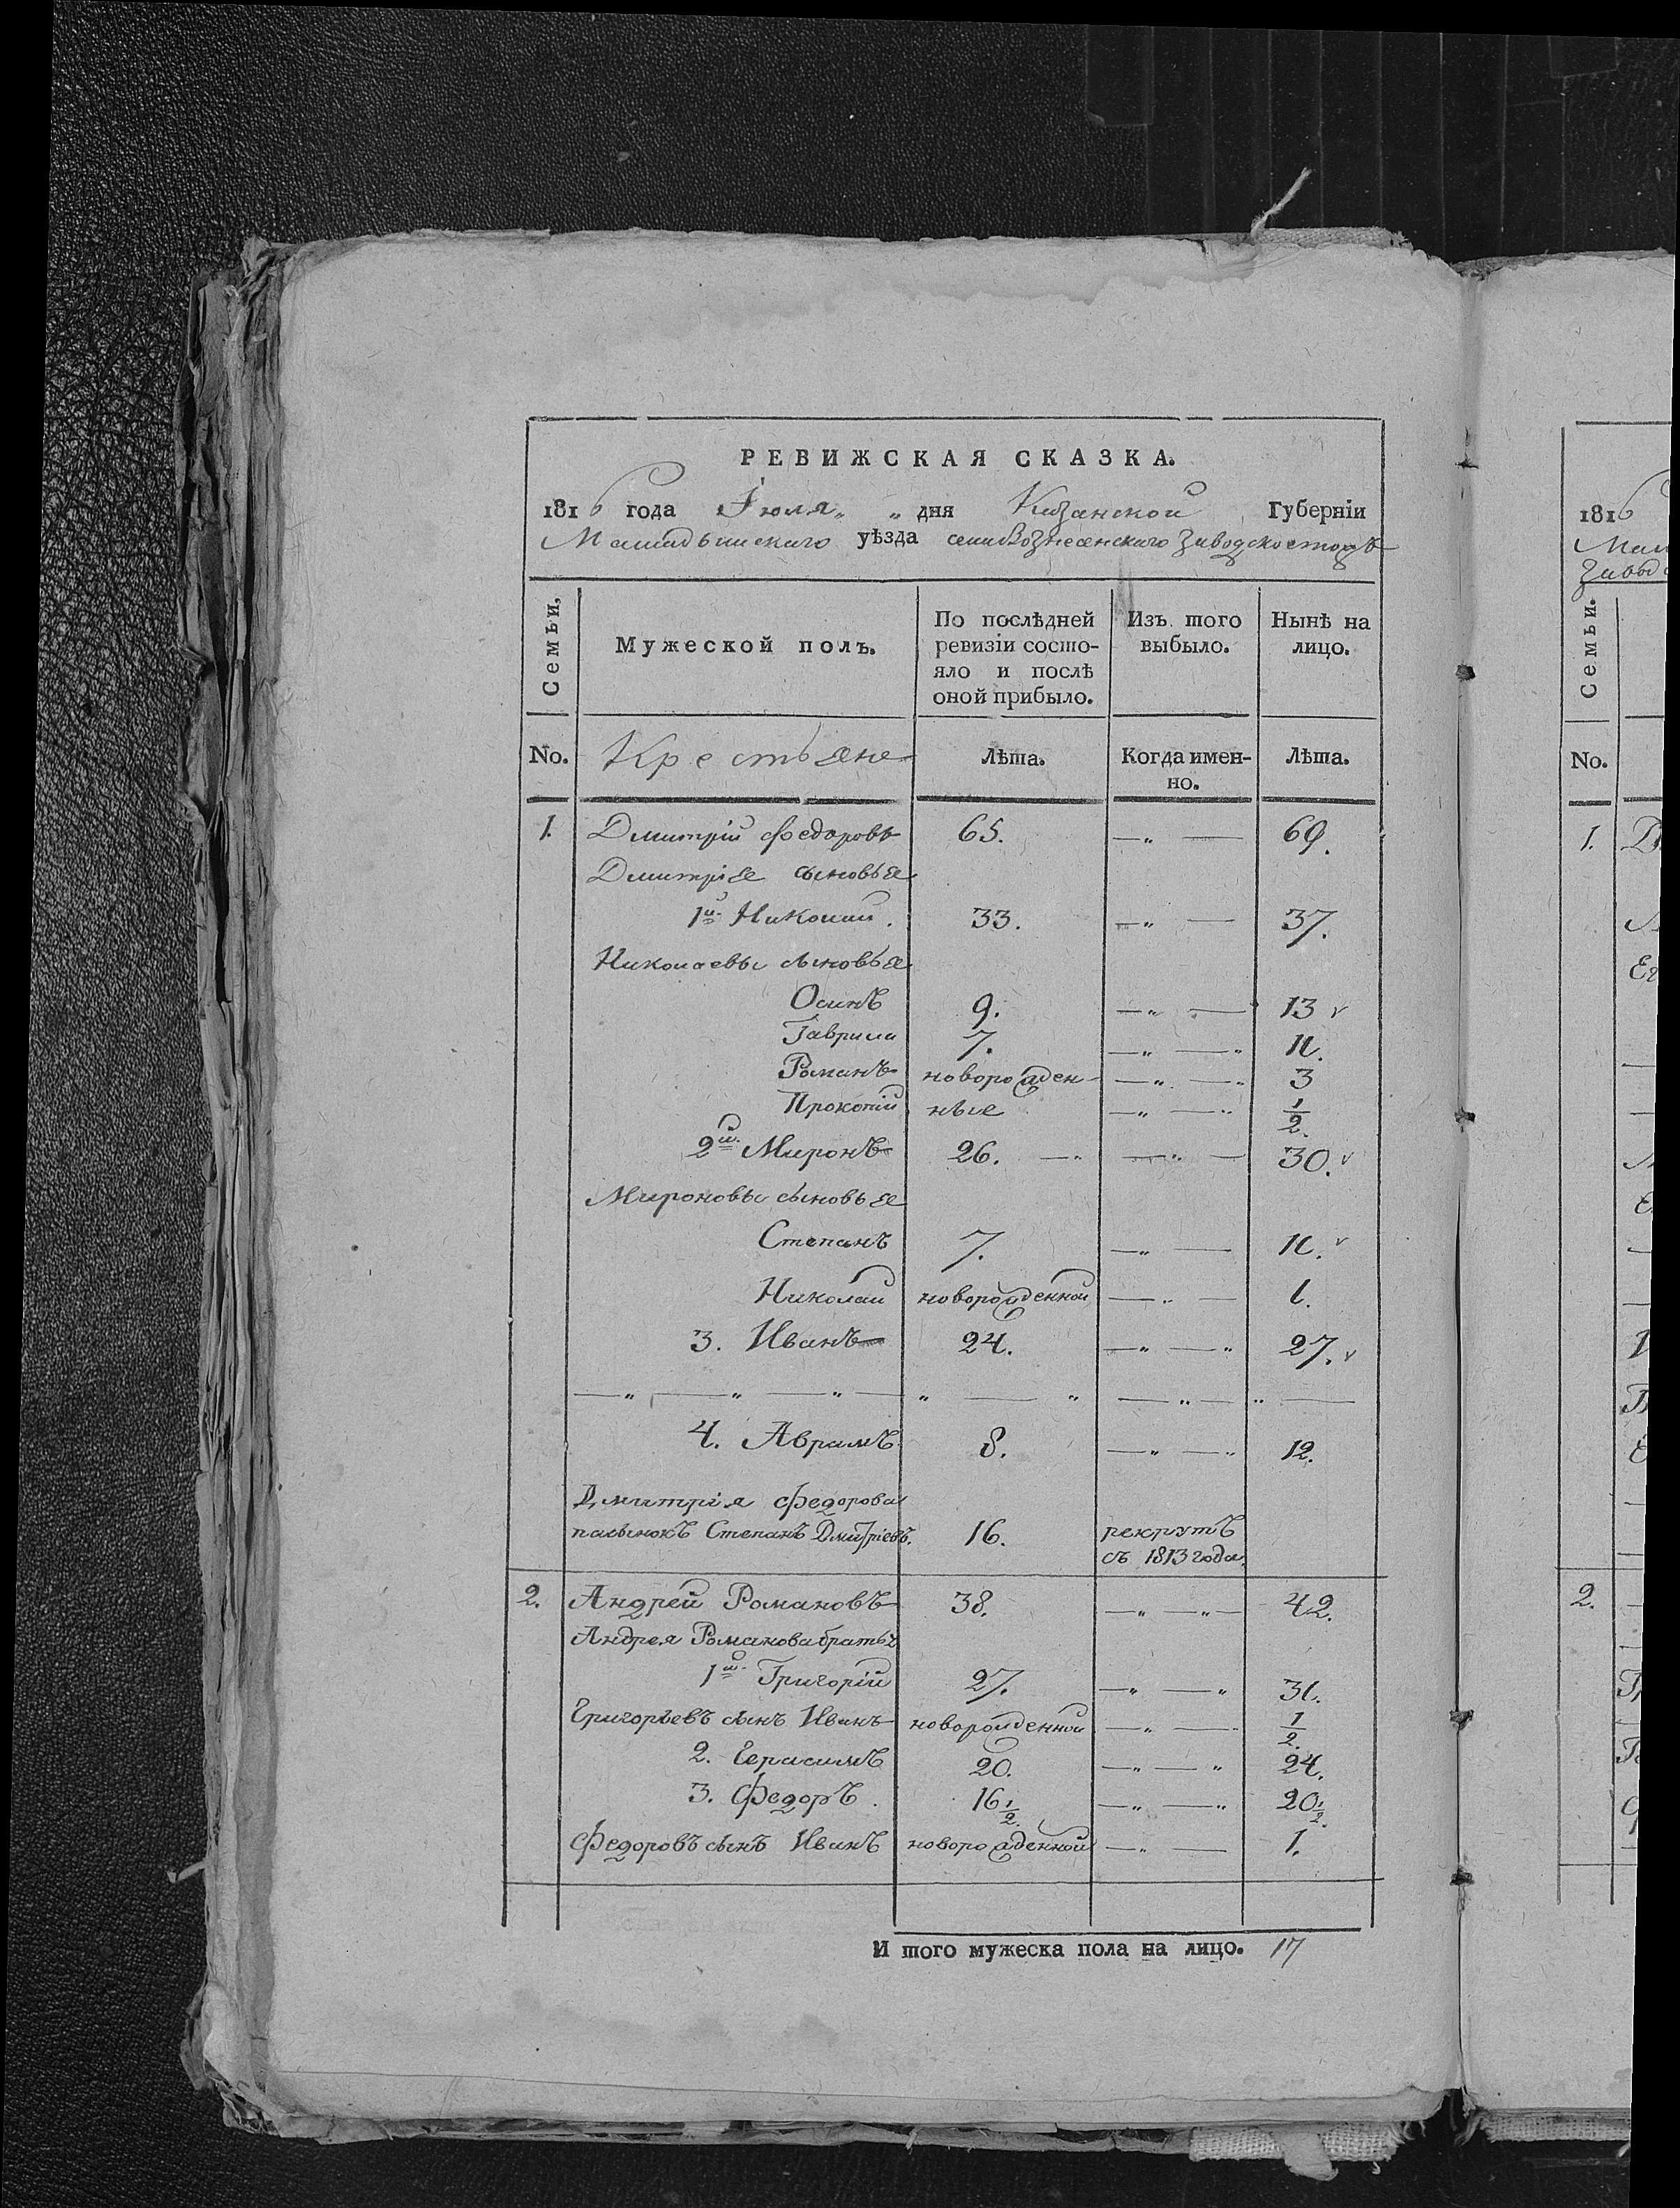 РЕВИЖСКАЯ СКАЗКА.
1816 года Іюля „ „ дня Казанской Губерніи
Мамадышскаго уѣзда села Вознесенскаго
Семьи,
Мужеской полъ.
По послѣдней ревизіи состо-
яло и послѣ оной прибыло.
Изъ того выбыло.
Нынѣ на лицо.
No. Крестьяне Лѣта. Когда имен-
но. Лѣта.
1. Дмитрій Федоровъ 65. —„— 69.
Дмитрія сыновья
1й Николай. 33. —„— 37.
Николаевы сыновья
Осипъ 9. —„— 13 v
Гаврила 7. —„— 11.
Романъ новорожден- —„— 3
Прокопій ные —„— 1/2.
2й Миронъ 26. —„ —„— 30. v
Мироновы сыновья
Степанъ 7. —„— 11. v
Николай новорожденной —„— 1.
3. Иванъ 24. —„—„ 27. v
—„—„—„—„—„—„—„—
4. Аврамъ 8. —„—„ 12.
Дмитрія Федорова
пасынокъ Степанъ Дмитріевъ. 16. рекрутъ
съ 1813 года.
2. Андрей Романовъ 38. —„—„— 42.
Андрея Романова братья
1й Григорій 27. —„—„ 31.
Григорьевъ сынъ Иванъ новорожденной —„— 1/2.
2. Герасимъ 20. —„—„ 24.
3. Федоръ. 16 1/2. —„—„ 20 1/2.
Федоровъ сынъ Иванъ новорожденной —„— 1.
И того мужеска пола на лицо. 17
1816
Семьи.
No.
1.
2.